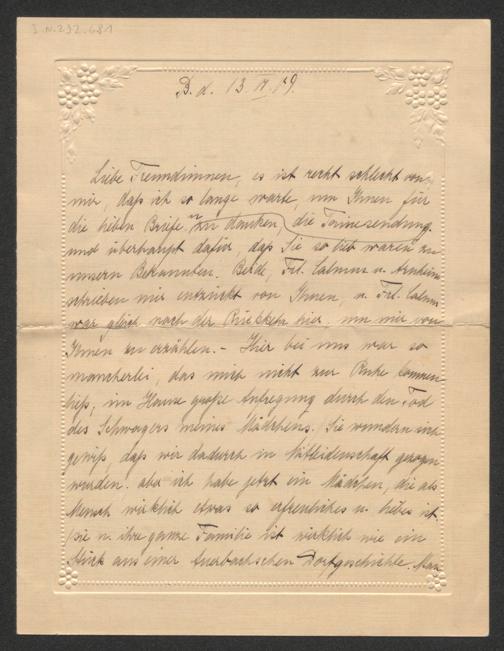 I.N. 232.681
B. d. 13. IV. 09.
Liebe Freundinnen, es ist recht schlecht von
mir, daß ich so lange warte, um Ihnen für
die lieben Briefe zu danken, die
und überhaupt dafür, daß Sie so lieb waren zu
unsern Bekannten. Beide, Frl. Calmus u. Arnheim
schrieben mir entzückt von Ihnen, u. Frl. Calmus
war gleich nach der Rückkehr hier, um mir von
Ihnen zu erzählen. – Hier bei uns war so
mancherlei, das mich nicht zur Ruhe kommen
ließ, im Hause große Aufregung durch den Tod
des Schwagers meines Mädchens. Sie wundern sich
gewiß, daß wir dadurch in Mitleidenschaft gezogen
wurden. aber ich habe jetzt ein Mädchen, die als
Mensch wirklich etwas so erfreuliches u. liebes ist.
Sie u. ihre ganze Familie ist wirklich wie ein
Stück aus einer Auerbachschen Dorfgeschichte. Man